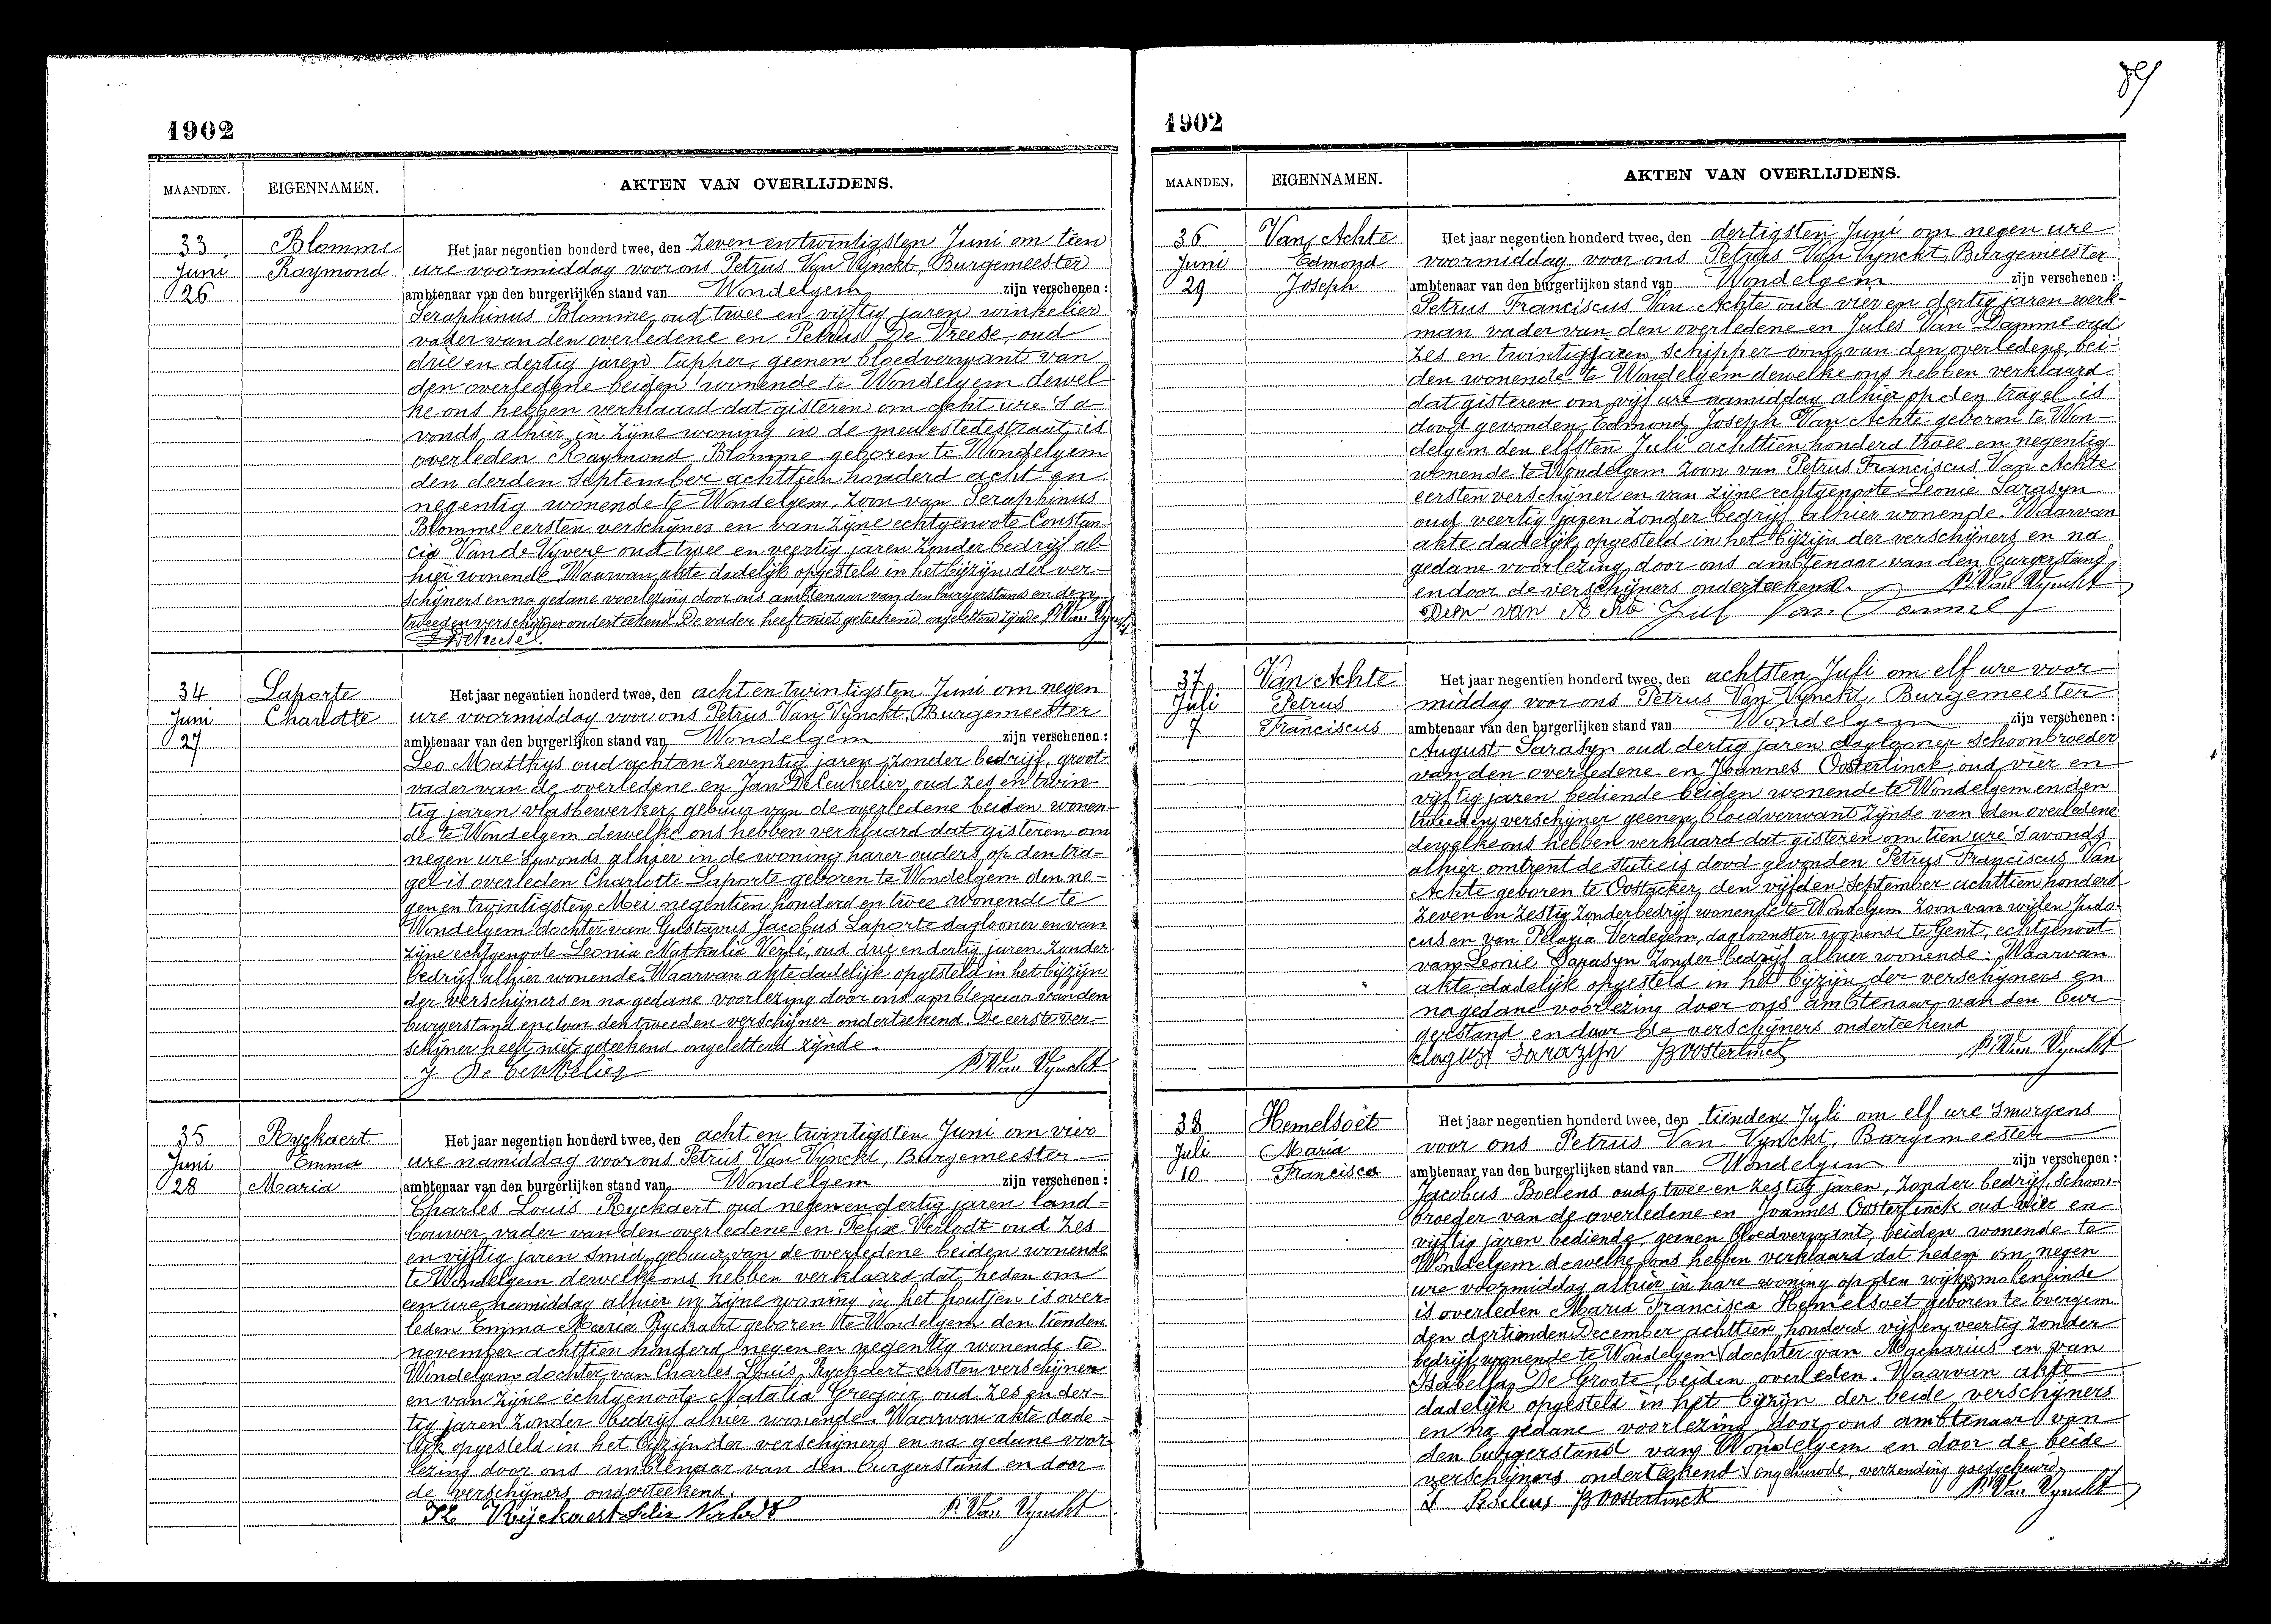 89
1902
MAANDEN. EIGENNAMEN. AKTEN VAN OVERLIJDENS.
33 Blomme
Juni Raymond
26
Het jaar negentien honderd twee, den zeven en twintigsten Juni om tien
ure voormiddag voor ons Petrus Van Vynckt, Burgemeester
ambtenaar van den burgerlijken stand van Wondelgem zijn verschenen :
Seraphinus Blomme oud twee en vijftig jaren winkelier
vader van den overledene en Petrus De Vreese oud
drie en dertig jaren tapper, geenen bloedverwant van
den overledene beiden wonende te Wondelgem dewel-
ke ons hebben verklaard dat gisteren om acht ure 's a-
vonds alhier in zijne woning in de meulestedestraat is
overleden Raymond Blomme geboren te Wondelgem
den derden September achttien honderd acht en
negentig wonende te Wondelgem, zoon van Seraphinus
Blomme eersten verschijner en van zijne echtgenoote Constan-
cia Van de Vyvere oud twee en veertig jaren zonder bedrijf al-
hier wonende Waarvan akte dadelijk opgesteld in het bijzijn der ver-
schijners en na gedane voorlezing door ons ambtenaar van den burgerstand en den
tweeden verschijner onderteekend De vader heeft niet geteekend ongeletterd zijnde P. Van Vynckt
34 Laporte
Juni Charlotte
27
Het jaar negentien honderd twee, den acht en twintigsten Juni om negen
ure voormiddag voor ons Petrus Van Vynckt, Burgemeester
ambtenaar van den burgerlijken stand van Wondelgem zijn verschenen :
Leo Matthys oud acht en zeventig jaren, zonder bedrijf, groot-
vader van de overledene en Jan De Ceukelier, oud zes en twin-
tig jaren vlasbewerker, gebuur van de overledene beiden wonen-
de te Wondelgem dewelke ons hebben verklaard dat gisteren om
negen ure 's avonds alhier in de woning harer ouders op den tra-
gel is overleden Charlotte Laporte geboren te Wondelgem den ne-
gen en twintigsten Mei negentien honderd en twee wonende te
Wondelgem dochter van Gustavus Jacobus Laporte daglooner en van
zijne echtgenoote Leonia Nathalia Verlé, oud drie en dertig jaren zonder
bedrijf alhier wonende. Waarvan akte dadelijk opgesteld in het bijzijn
der verschijners en na gedane voorlezing door ons ambtenaar van den
burgerstand en door den tweeden verschijner onderteekend. De eerste ver-
schijner heeft niet geteekend ongeletterd zijnde.
J De Ceukelier P. Van Vynckt
35 Ryckaert
Juni Emma
28 Maria
Het jaar negentien honderd twee, den acht en twintigsten Juni om vier
ure namiddag voor ons Petrus Van Vynckt, Burgemeester
ambtenaar van den burgerlijken stand van Wondelgem zijn verschenen :
Charles Louis Ryckaert oud negen en dertig jaren land-
bouwer, vader van den overledene en Felix Verlodt oud zes
en vijftig jaren smid, gebuur van de overledene beiden wonende
te Wondelgem dewelke ons hebben verklaard dat heden om
een ure namiddag alhier in zijne woning in het houtjen is over-
leden Emma Maria Ryckaert geboren te Wondelgem den tienden
november achttien honderd negen en negentig wonende te
Wondelgem dochter van Charles Louis Ryckaert eersten verschijner
en van zijne echtgenoote Natalia Gregoir oud zes en der-
tig jaren zonder bedrijf alhier wonende. Waarvan akte dade-
lijk opgesteld in het bijzijn der verschijners en na gedane voor-
lezing door ons ambtenaar van den burgerstand en door
de verschijners onderteekend.
Ryckaert Felix Verlodt P. Van Vynckt
1902
MAANDEN. EIGENNAMEN. AKTEN VAN OVERLIJDENS.
36 Van Achte
Juni Edmond
29 Joseph
Het jaar negentien honderd twee, den dertigsten Juni om negen ure
voormiddag voor ons Petrus Van Vynckt, Burgemeester
ambtenaar van den burgerlijken stand van Wondelgem zijn verschenen :
Petrus Franciscus Van Achte oud vier en dertig jaren werk-
man vader van den overledene en Jules Van Damme oud
zes en twintig jaren, schipper oom van den overledene, bei-
den wonende te Wondelgem dewelke ons hebben verklaard
dat gisteren om vijf ure namiddag alhier op den tragel is
dood gevonden Edmond Joseph Van Achte geboren te Won-
delgem den elfsten Juli achttien honderd twee en negentig
wonende te Wondelgem zoon van Petrus Franciscus Van Achte
eersten verschijner en van zijne echtgenoote Leonie Sarasyn
oud veertig jaren zonder bedrijf alhier wonende. Waarvan
akte dadelijk opgesteld in het bijzijn der verschijners en na
gedane voorlezing door ons ambtenaar van den burgerstand
en door de verschijners onderteekend. P. Van Vynckt
van Achte Jul Van Dammel
37 Van Achte
Juli Petrus
7 Franciscus
Het jaar negentien honderd twee, den achtsten Juli om elf ure voor-
middag voor ons Petrus Van Vynckt, Burgemeester
ambtenaar van den burgerlijken stand van Wondelgem zijn verschenen :
August Sarasyn oud dertig jaren daglooner schoonbroeder
van den overledene en Joannes Oosterlinck, oud vier en
vijftig jaren bediende beiden wonende te Wondelgem en den
tweeden verschijner geenen bloedverwant zijnde van den overledene
dewelke ons hebben verklaard dat gisteren om tien ure 's avonds
alhier omtrent de statie is dood gevonden Petrus Franciscus Van
Achte geboren te Oostacker den vijfden September achttien honderd
zeven en zestig zonder bedrijf wonende te Wondelgem zoon van wijlen Judo-
cus en van Pelagia Verdegem, dagloonster wonende te Gent, echtgenoot
van Leonie Sarasyn zonder bedrijf alhier wonende : Waarvan
akte dadelijk opgesteld in het bijzijn der verschijners en
na gedane voorlezing door ons ambtenaar van den bur-
gerstand en door de verschijners onderteekend
August Sarazyn J Oosterlinck P. Van Vynckt
38 Hemelsoet
Juli Maria
10 Francisca
Het jaar negentien honderd twee, den tienden Juli om elf ure 's morgens
voor ons Petrus Van Vynckt, Burgemeester
ambtenaar van den burgerlijken stand van Wondelgem zijn verschenen :
Jacobus Boelens oud twee en zestig jaren, zonder bedrijf, schoon-
broeder van de overledene en Joannes Oosterlinck oud vier en
vijftig jaren bediende, geenen bloedverwant, beiden wonende te
Wondelgem dewelke ons hebben verklaard dat heden om negen
ure voormiddag alhier in hare woning op den wijk moleneinde
is overleden Maria Francisca Hemelsoet geboren te Evergem
den dertienden December achttien honderd vijf en veertig zonder
bedrijf wonende te Wondelgem dochter van Macharius en van
Isabella De Groote, beiden overleden. Waarvan akte
dadelijk opgesteld in het bijzijn der beide verschijners
en na gedane voorlezing door ons ambtenaar van
den burgerstand van Wondelgem en door de beide
verschijners onderteekend. verzending goedgekeurd
Boelens J Oosterlinck P. Van Vynckt